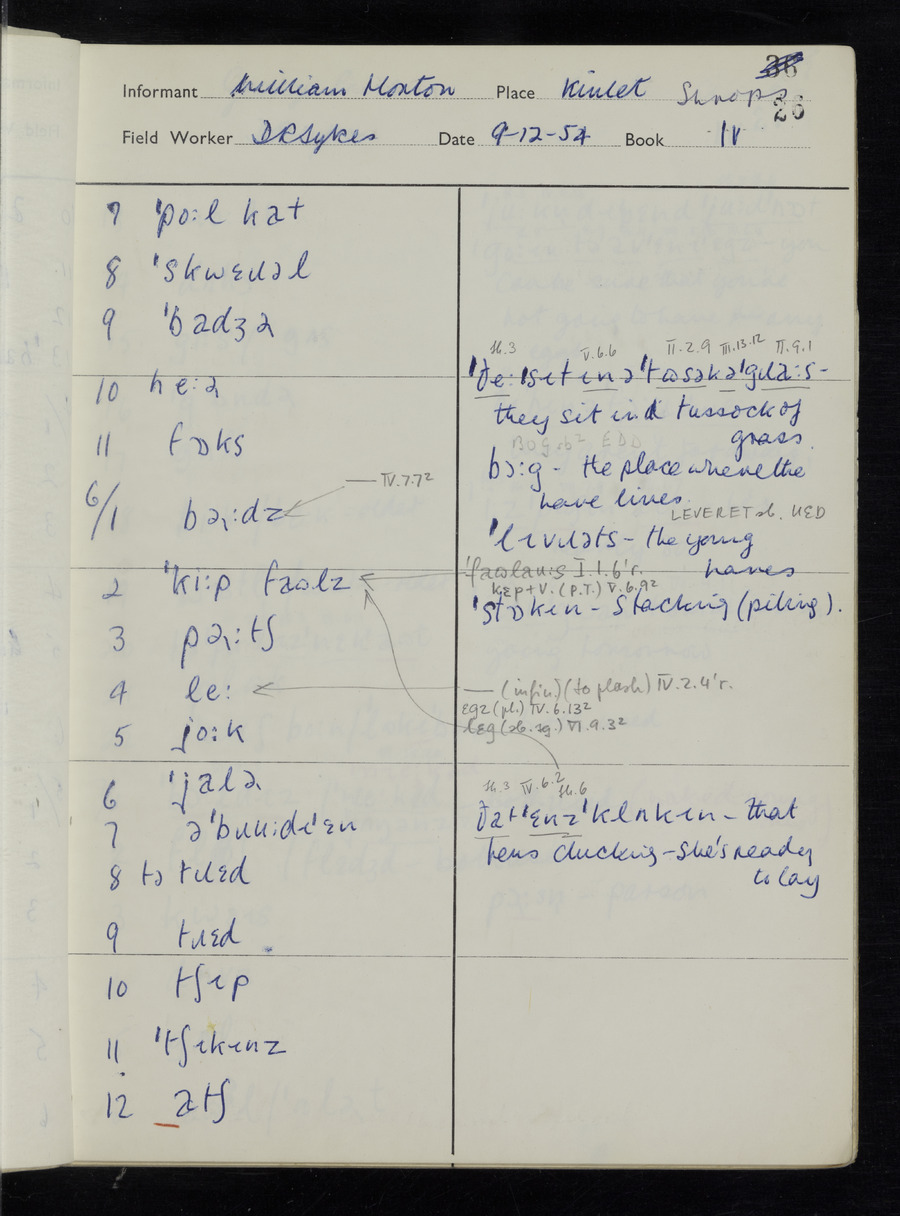 36
Informant William Morton Place Kinlet Shrops
26
Field Worker DRSykes Date 9-12-54 Book IV
7 ˈpoːl kat
8 ˈskwɛɹəl
9 ˈbadʒə
10 heːə
11 fɒks
6/1 bəːdz — IV.7.7²
2 ˈkiːp faʊlz
3 pəːtʃ
4 leː
5 joːk
6 ˈjalə
7 əˈbɹuːdiˈɛn
8 tə tɹɛd
9 tɹɛd
10 tʃɪp
11 ˈtʃɪkɪnz
12 atʃ
th.3 V.6.6 II.2.9 III.13.12 II.9.1
ˈðeːˈsɪt ɪn əˈtʊsəkəˈgɹaːs -
they sit in a tussock of
grass.
BOG sb² EDD
bɔːg - the place where the
hare lives.
LEVERET sb. NED
ˈlɪvɹəts - the young
hares
I.1.6'r.
kɛp + v. (p.t.) V.6.9²
ˈstɒkɪn - stacking (piling).
— (infin.) (to plash) IV.2.4'r.
ɛgz (pl.) IV.6.13²
lɛg (sb. sg.) VI.9.3²
th.3 IV.6.2 th.6
ðatˈɛnzˈklʌkɪn - that
hens clucking - she's ready
to lay